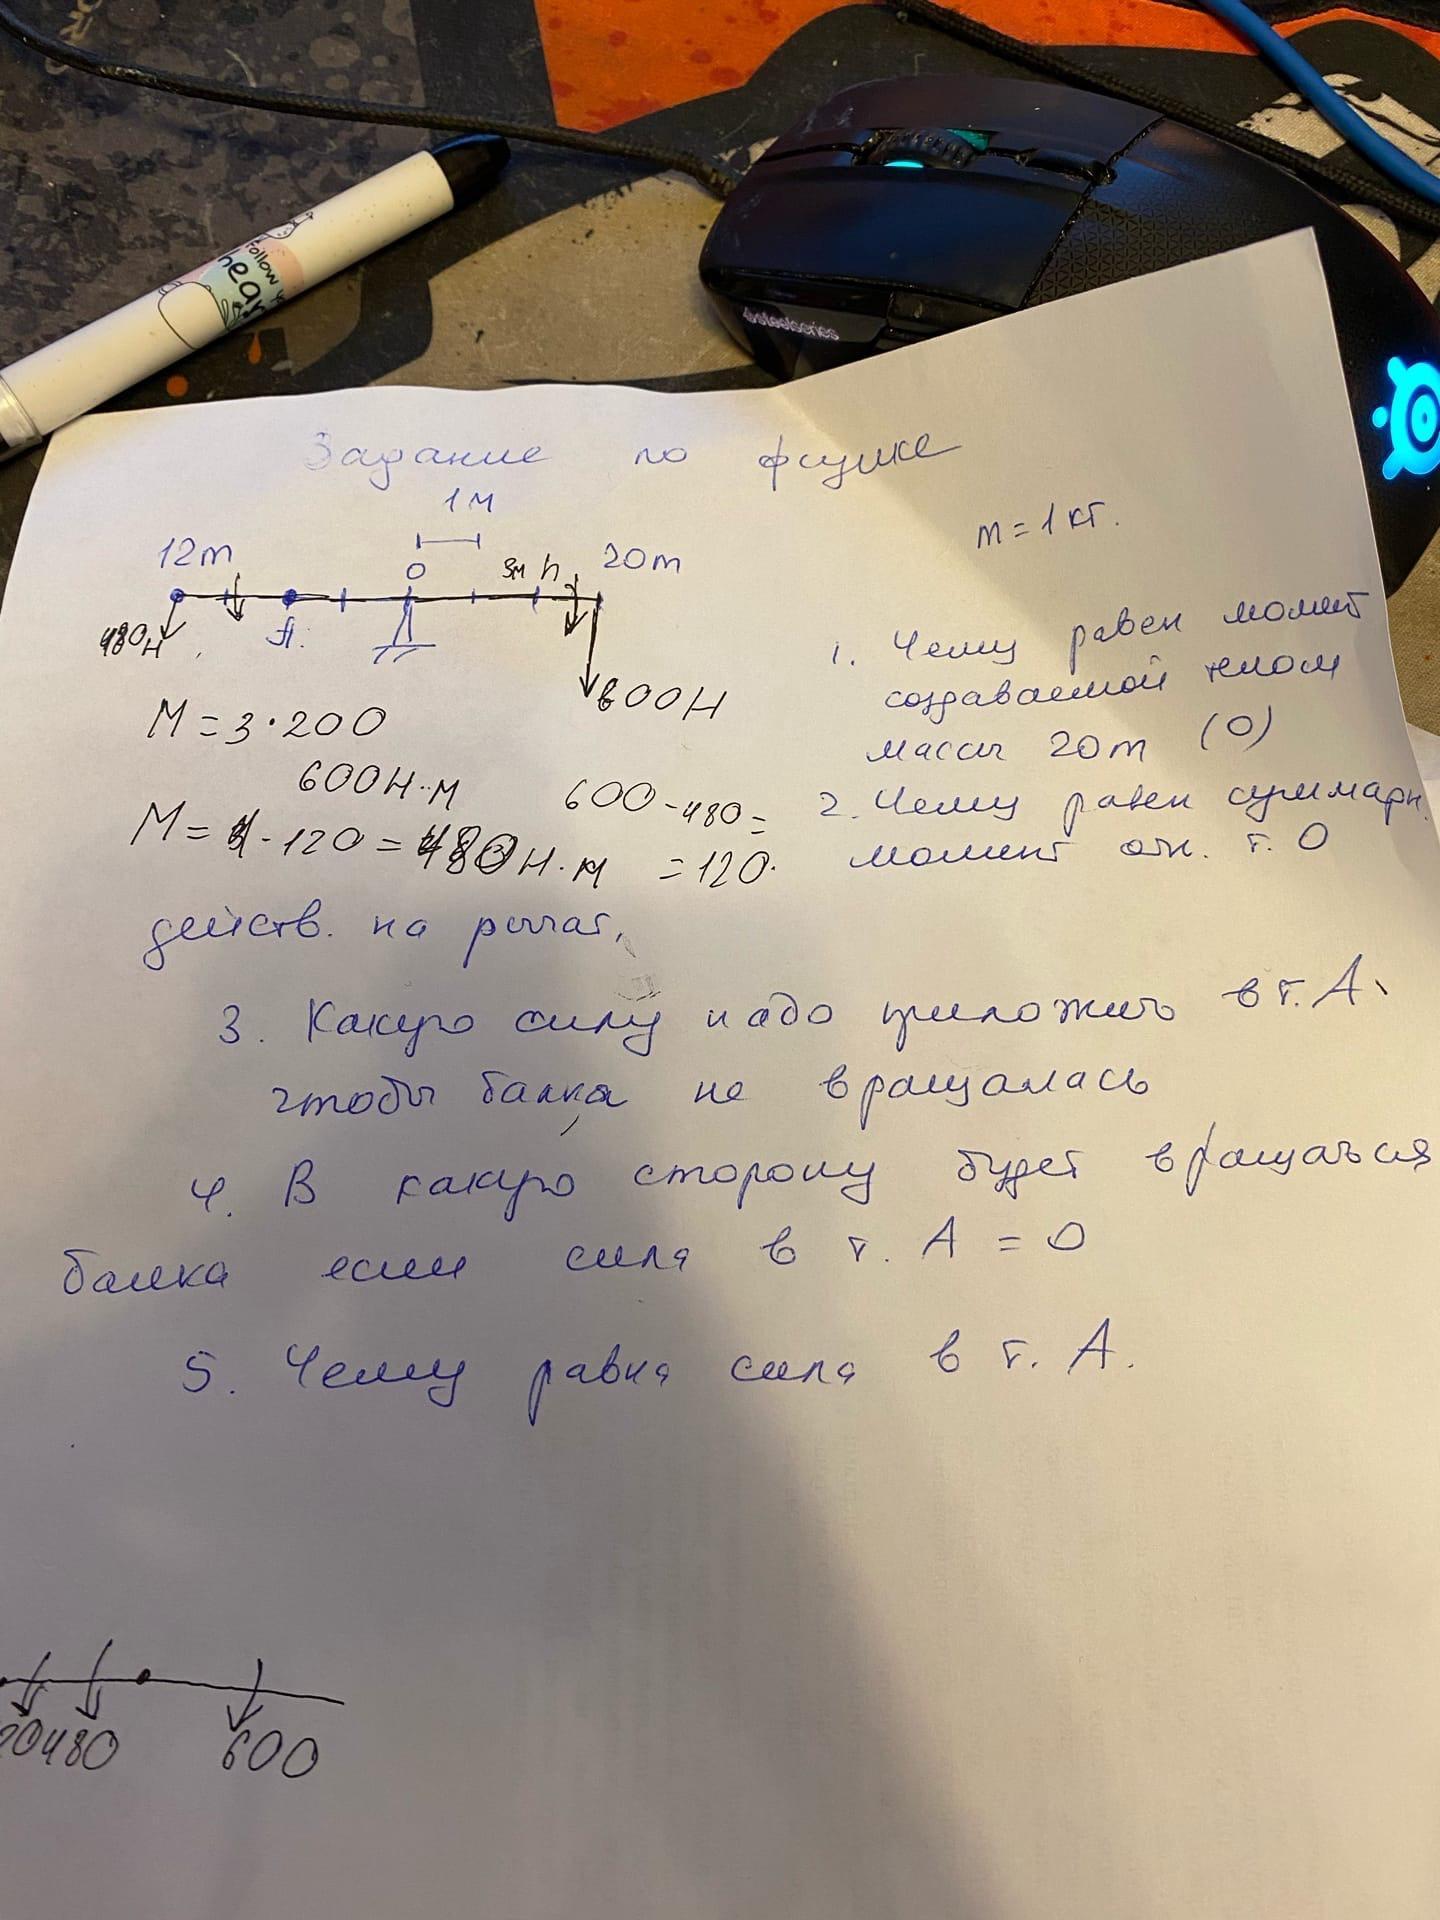 Follow
hear
steelseries
Задание по физике
1м
m = 1 кг.
12m
0
3м
h
20m
480н
A.
600Н
1. Чему равен момент
создаваемой телом
массы 20m (О)
M = 3·200
600Н·м
600-480=
=120.
M = 4·120 = 480Н·м
2. Чему равен суммарн.
момент отн. т. О
действ. на рычаг.
3. Какую силу надо приложить в т. А.
чтобы балка не вращалась
4. В какую сторону будет вращаться
балка если сила в т. А = 0
5. Чему равна сила в т. А.
20
480
600